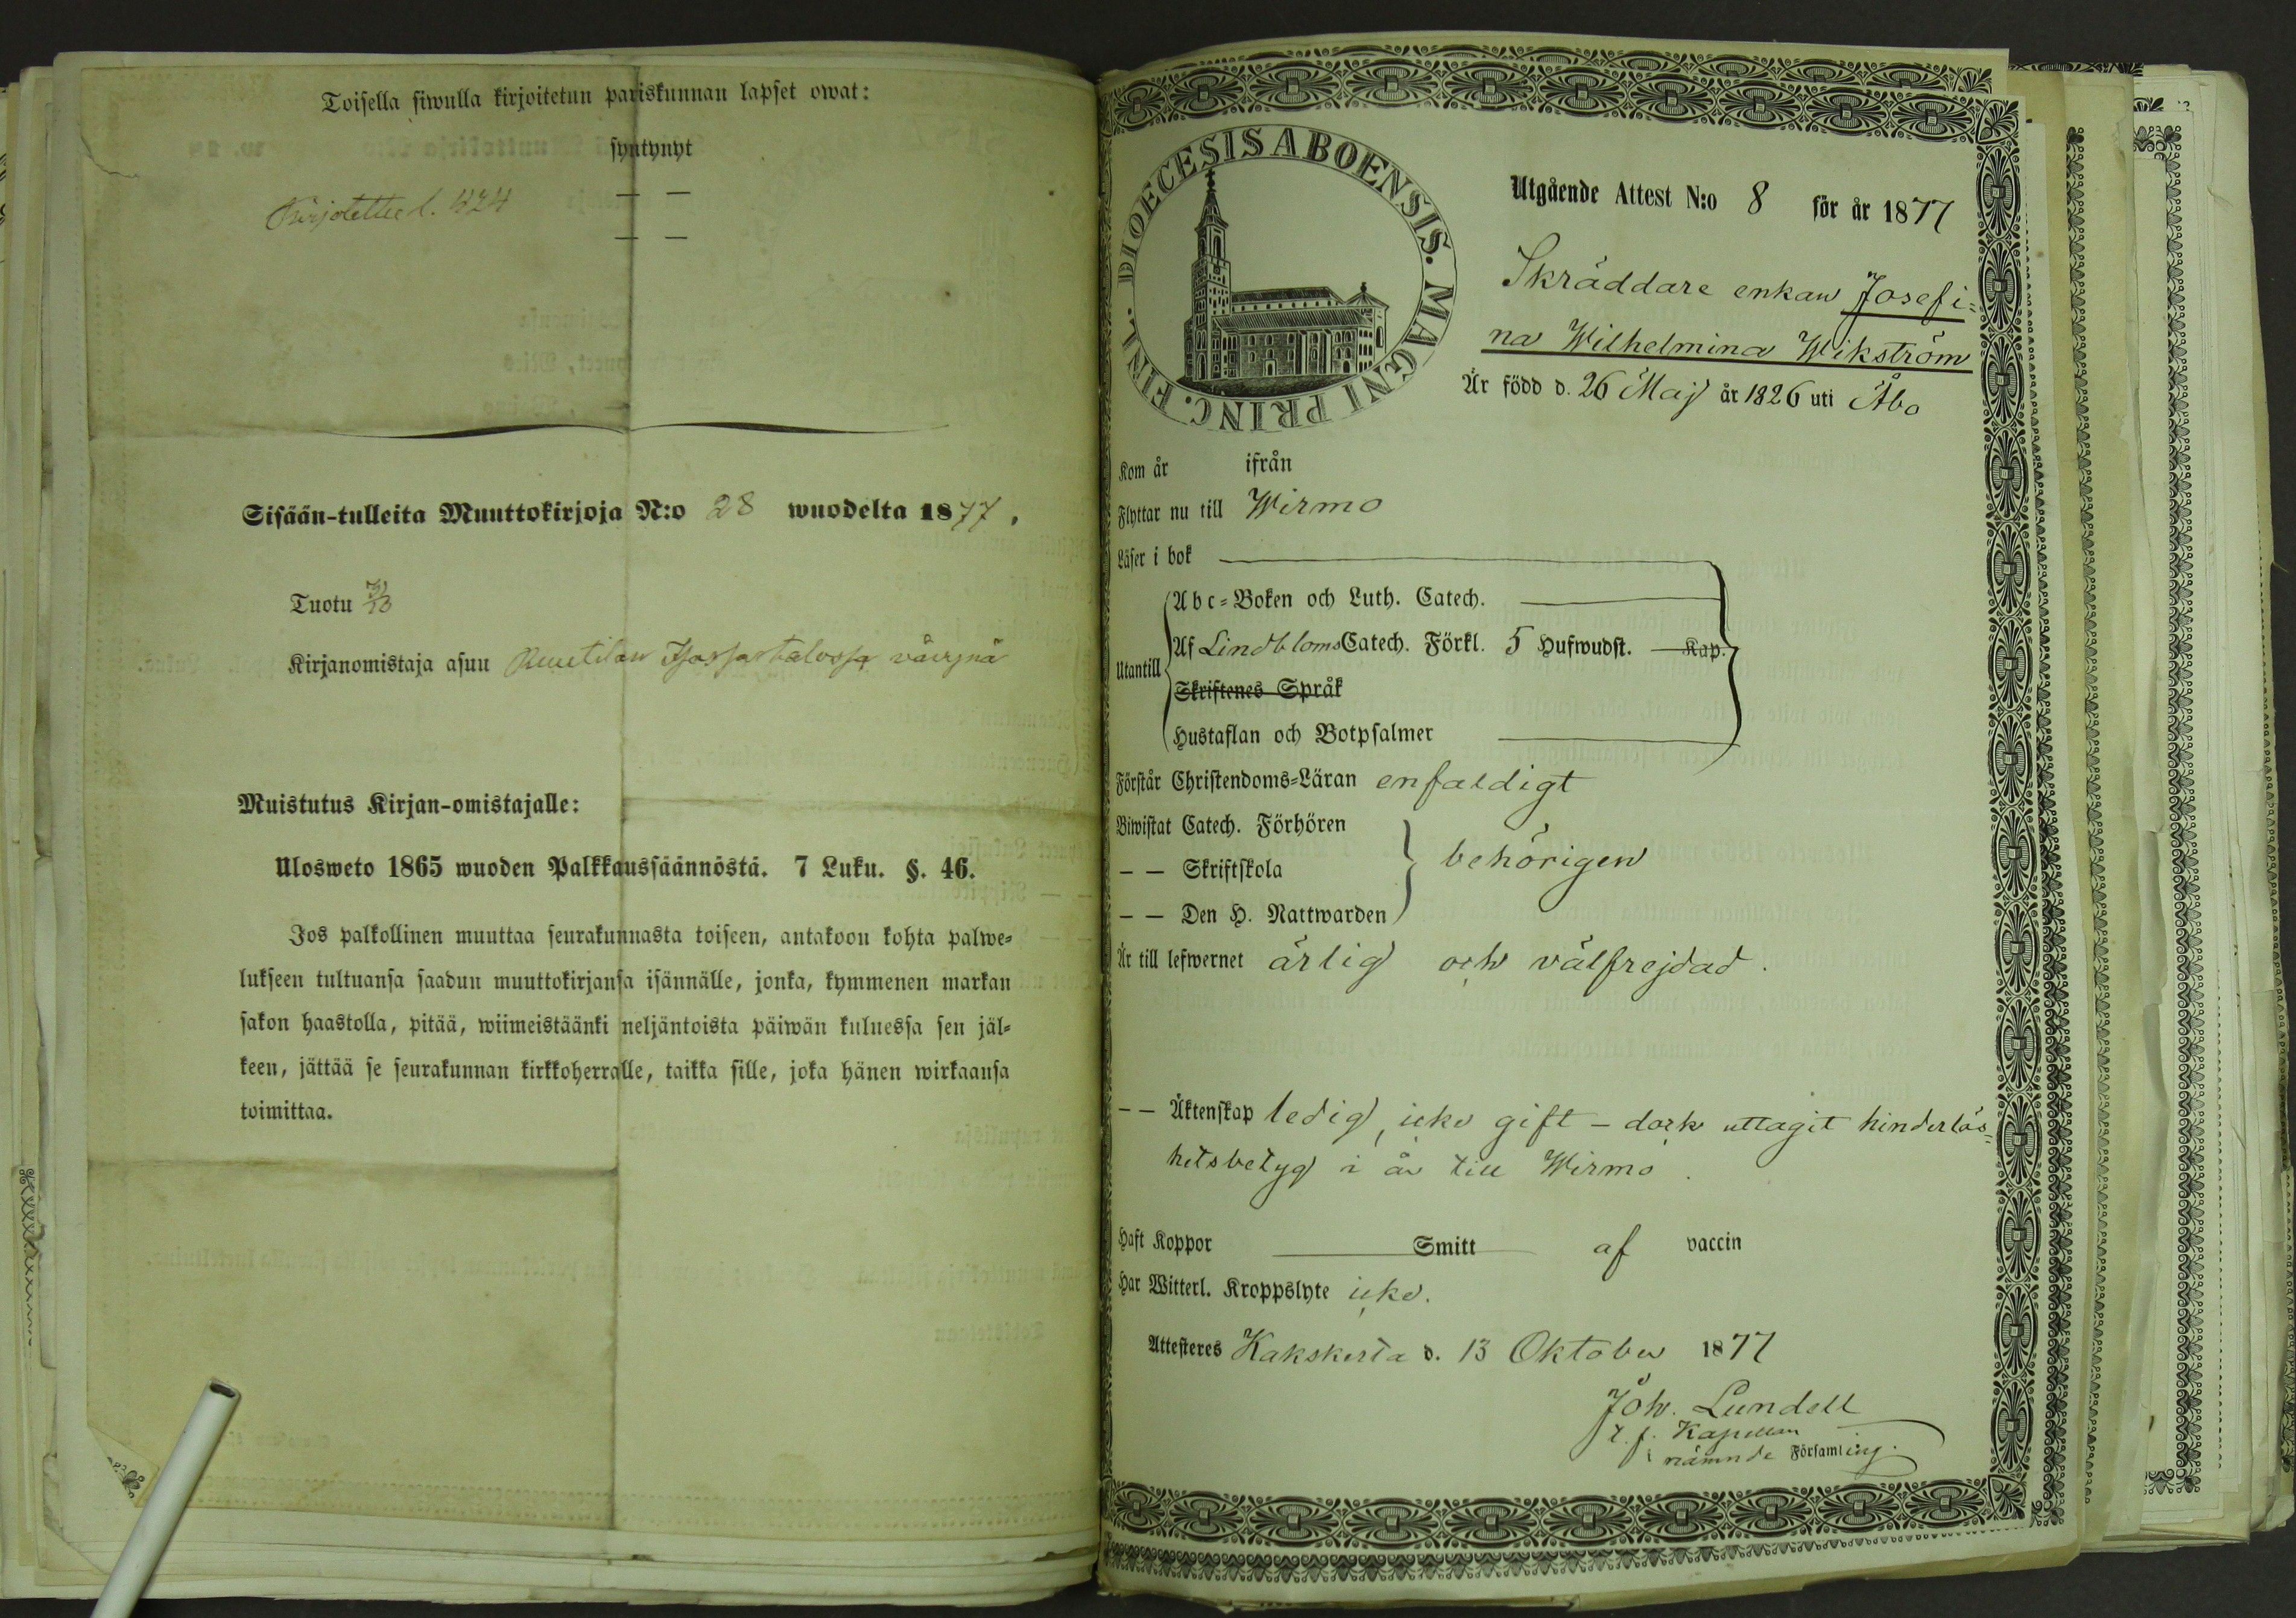 Toisella siwulla kirjoitetun pariskunnan lapset owat:
syntynyt
Kirjotettu l. 424
— —
— —
Sisään-tulleita Muuttokirjoja N:o 28 wuodelta 1877.
Tuotu
Kirjanomistaja asuu
Muistutus Kirjan-omistajalle:
Ulosweto 1865 wuoden Palkkaussäännöstä. 7 Luku. §. 46.
Jos palkollinen muuttaa seurakunnasta toiseen, antakoon kohta palwe-
lukseen tultuansa saadun muuttokirjansa isännälle, jonka, kymmenen markan
sakon haastolla, pitää, wiimeistäänki neljäntoista päiwän kuluessa sen jäl-
keen, jättää se seurakunnan kirkkoherralle, taikka sille, joka hänen wirkaansa
toimittaa.
FINL. DIOECESIS ABOENSIS. MAGNI PRINC.
Utgående Attest N:o 8 för år 1877
Skräddare enkan Josefi-
na Wilhelmina Wikström
Är född d. 26 Maj år 1826 uti Åbo
Kom år ifrån
Flyttar nu till Wirmo
Läser i bok
Utantill
Abc-Boken och Luth. Catech.
Af Lindbloms Catech. Förkl. 5 Hufwudst. Kap.
Skriftenes Språk
Hustaflan och Botpsalmer
Förstår Christendoms-Läran enfaldigt
Biwistat Catech. Förhören
— — Skriftskola behörigen
— — Den H. Nattwarden
Är till lefwernet ärlig och välfrejdad.
— — Äktenskap ledig, icke gift – dock uttagit hinderlös-
hetsbetyg i år till Wirmo.
Haft Koppor Smitt af vaccin
Har Witterl. Kroppslyte icke.
Attesteres Kakskerta d. 13 Oktober 1877
Joh. Lundell
t. f. Kapellan
i nämnde Församling.